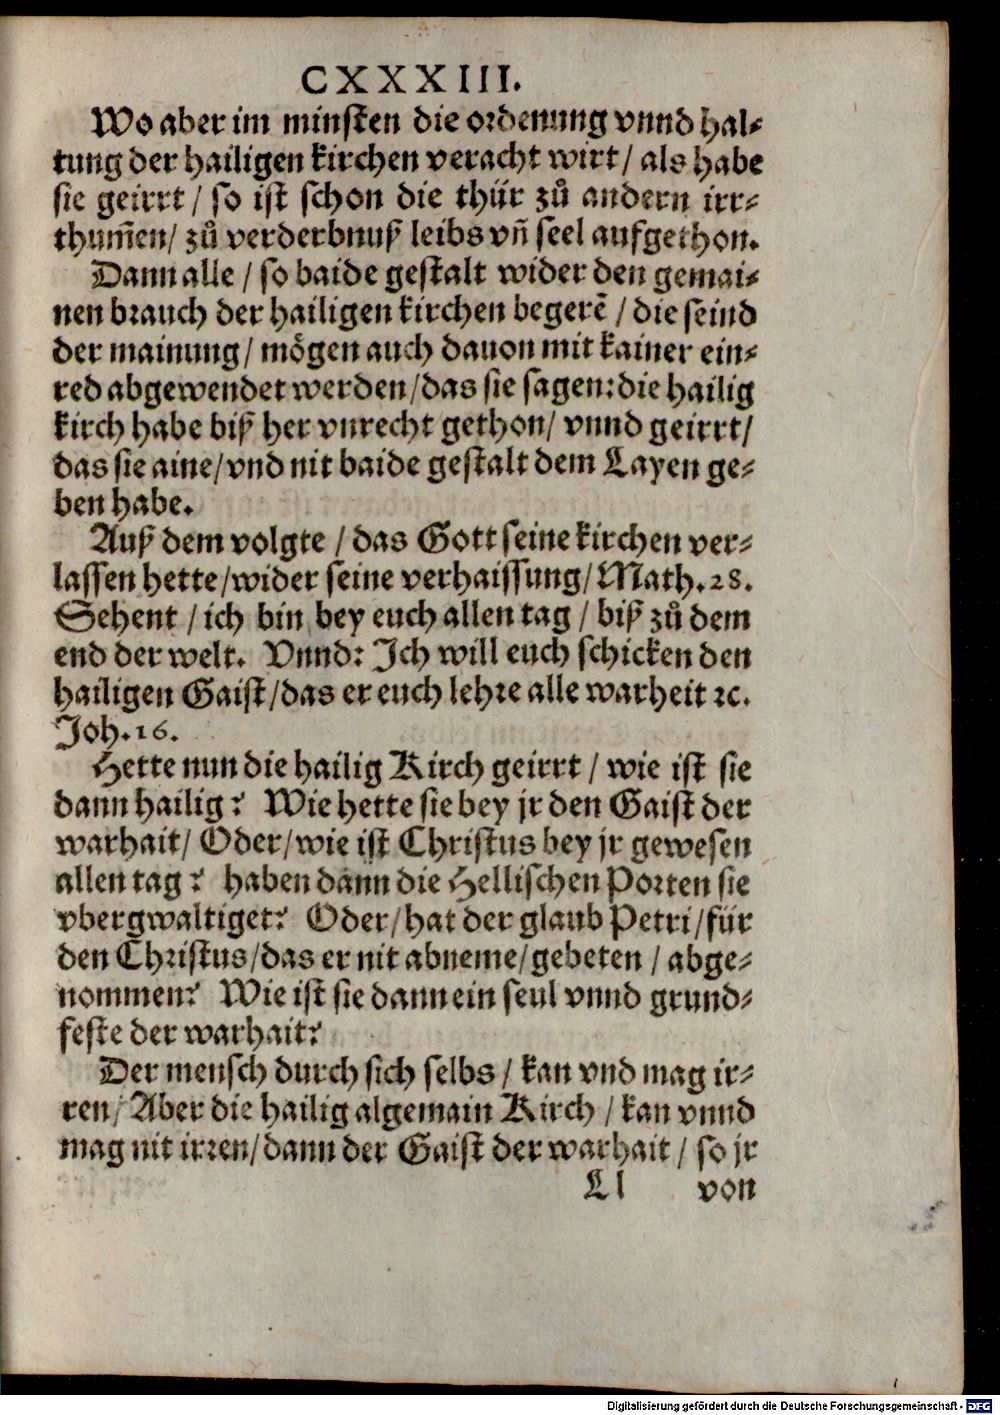 CXXXIII.
Wo aber im minsten die ordenung vnnd hal⸗
tung der hailigen kirchen veracht wirt/ als habe
sie geirrt/ so ist schon die thür zů andern irr⸗
thum̃en/ zů verderbnuß leibs vñ seel aufgethon.
Dann alle/ so baide gestalt wider den gemai⸗
nen brauch der hailigen kirchen begerẽ/ die seind
der mainung/ mögen auch dauon mit kainer ein⸗
red abgewendet werden/ das sie sagen: die hailig
kirch habe biß her vnrecht gethon/ vnnd geirrt/
das sie aine/ vnd nit baide gestalt dem Layen ge⸗
ben habe.
Auß dem volgte/ das Gott seine kirchen ver⸗
lassen hette/ wider seine verhaissung/ Math. 28.
Sehent/ ich bin bey euch allen tag/ biß zů dem
end der welt. Vnnd: Ich will euch schicken den
hailigen Gaist/ das er euch lehre alle warheit ꝛc.
Joh. 16.
Hette nun die hailig Kirch geirrt/ wie ist sie
dann hailig? Wie hette sie bey jr den Gaist der
warhait/ Oder/ wie ist Christus bey jr gewesen
allen tag? haben dann die Hellischen Porten sie
vbergwaltiget? Oder/ hat der glaub Petri/ für
den Christus/ das er nit abneme/ gebeten/ abge⸗
nommen? Wie ist sie dann ein seul vnnd grund⸗
feste der warhait?
Der mensch durch sich selbs/ kan vnd mag ir⸗
ren/ Aber die hailig algemain Kirch/ kan vnnd
mag nit irren/ dann der Gaist der warhait/ so jr
Ll von
Digitalisierung gefördert durch die Deutsche Forschungsgemeinschaft - DFG